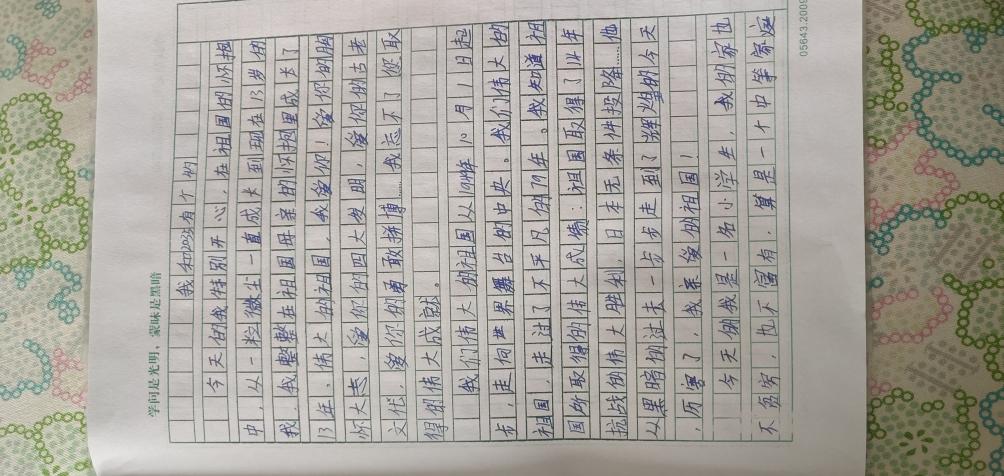 学问是光明，蒙昧是黑暗
我和2035有个约
今天的我特别开心，在祖国的怀抱
中，从一粒微尘一直成长到现在13岁的
我，我整整在祖国母亲的怀抱里成长了
13年、伟大的祖国，我爱你！爱你的胸
怀大志，爱你的四大发明，爱你的古老
文化，爱你的勇敢拼博……我忘不了您取
得的伟大成就。
我们伟大的祖国从1949年10月1日起
步，走向世界舞台的中央。我们伟大的
祖国，走过了不平凡的79年。我知道祖
国所取得的伟大成绩：祖国取得了14年
抗战的伟大胜利，日本无条件投降……他
从黑暗的过去一步步走到了辉煌的今天
，厉害了，我亲爱的祖国！
今天的我是一名小学生，我的家也
不贫穷，也不富有，算是一个中等家庭
05643.2009